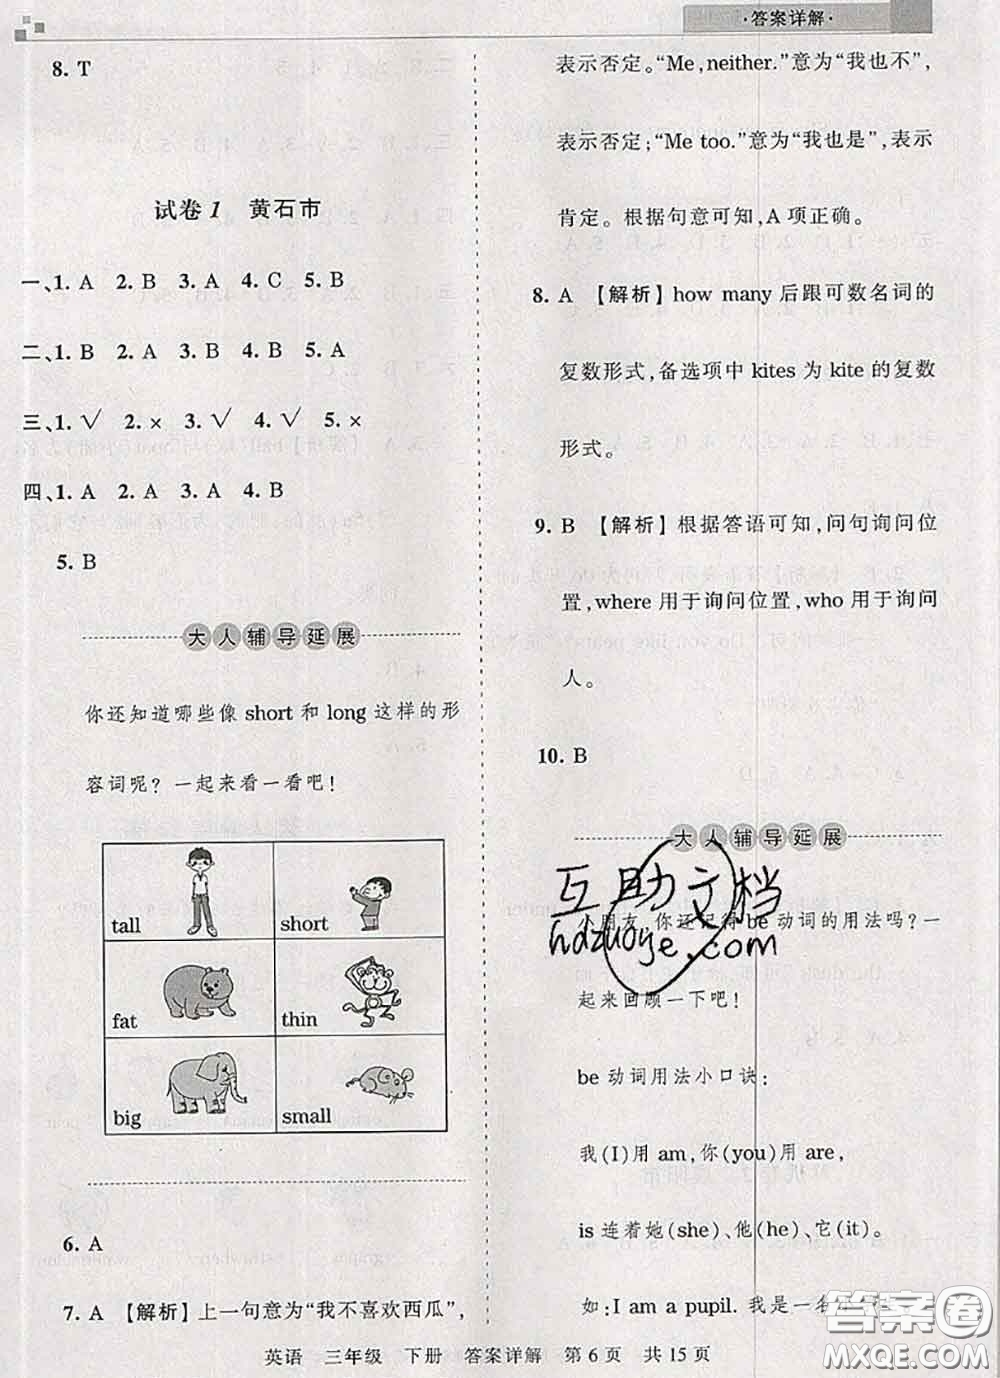 ·答案详解·
8. T
试卷1 黄石市
一、1. A 2. B 3. A 4. C 5. B
二、1. B 2. A 3. B 4. B 5. A
三、1. √ 2. × 3. √ 4. √ 5. ×
四、1. A 2. A 3. A 4. B
5. B
大人辅导延展
你还知道哪些像 short 和 long 这样的形
容词呢？一起来看一看吧！
tall short
fat thin
big small
6. A
7. A 【解析】上一句意为“我不喜欢西瓜”，
表示否定。“Me, neither.”意为“我也不”，
表示否定；“Me too.”意为“我也是”，表示
肯定。根据句意可知，A 项正确。
8. A 【解析】how many 后跟可数名词的
复数形式，备选项中 kites 为 kite 的复数
形式。
9. B 【解析】根据答语可知，问句询问位
置，where 用于询问位置，who 用于询问
人。
10. B
大人辅导延展
互助文档
hdzuoye.com
小朋友，你还记得 be 动词的用法吗？一
起来回顾一下吧！
be 动词用法小口诀：
我(I)用 am，你(you)用 are，
is 连着她(she)、他(he)、它(it)。
如：I am a pupil. 我是一名
答案圈
MXQE.COM
英语 三年级 下册 答案详解 第6页 共15页